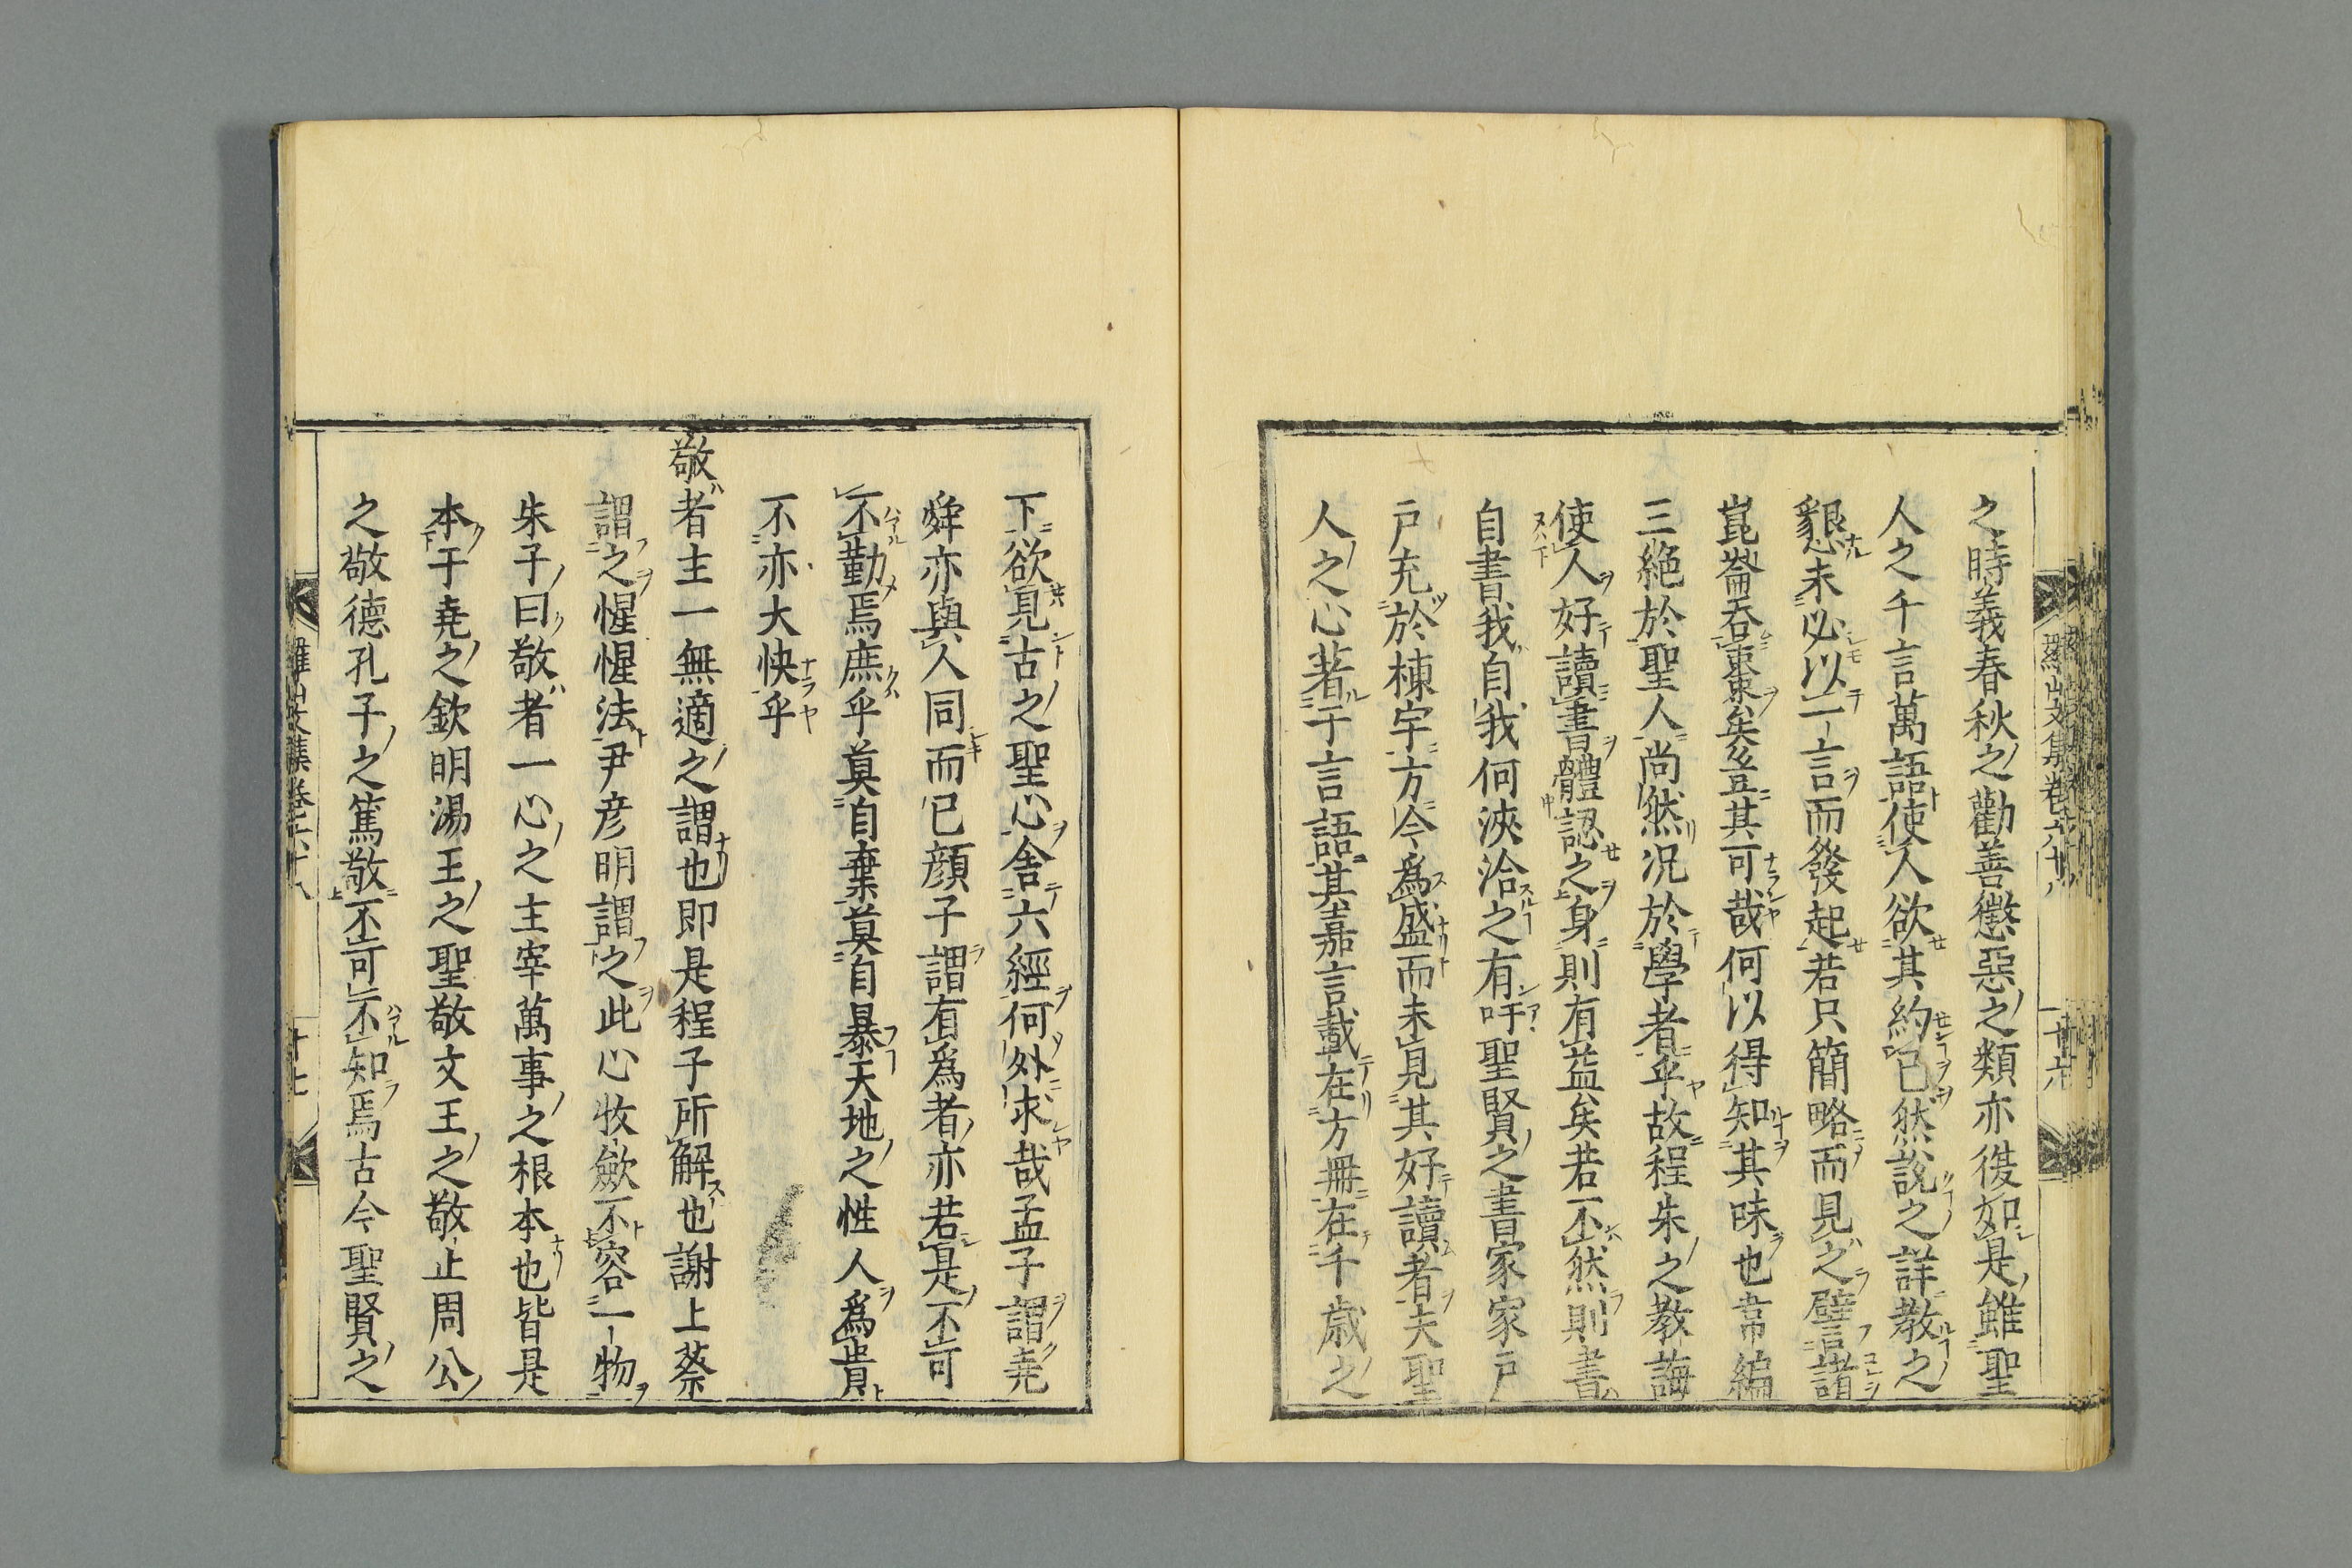 之時義春秋之勸善懲惡之類亦復如是雖聖
人之千言萬語使人欲其約已然說之詳教之
懇未必以一言而發起若只簡略而見之譬諸
崑崙吞棗矣豈其可哉何以得知其味也韋編
三絕於聖人尚然況於學者乎故程朱之教誨
使人好讀書體認之身則有益矣若不然則書
自書我自我何浹洽之有吁聖賢之書家家戶
戶充於棟宇方今爲盛而未見其好讀者夫聖
人之心著于言語其嘉言載在方冊在千歲之
羅山文集卷六十八
十六
下欲見古之聖心舍六經何外求哉孟子謂堯
舜亦與人同而已顏子謂有爲者亦若是不可
不勤焉庶乎莫自棄莫自暴天地之性人爲貴
不亦大快乎
敬者主一無適之謂也即是程子所解也謝上蔡
謂之惺惺法尹彥明謂之此心收斂不容一物
朱子曰敬者一心之主宰萬事之根本也皆是
本于堯之欽明湯王之聖敬文王之敬止周公
之敬德孔子之篤敬不可不知焉古今聖賢之
羅山文集卷六十八
十七